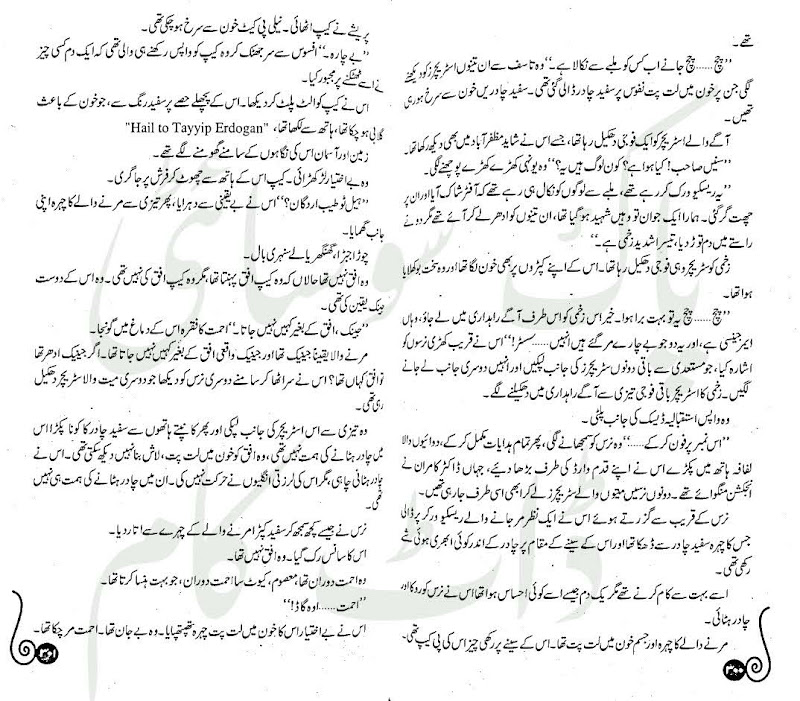 تھے۔
’’چچ......چچ جانے اب کس کو ملبے سے نکالا ہے۔‘‘ وہ تاسف سے ان تینوں اسٹریچرز کو دیکھنے
لگی جن پر خون میں لت پت نفوس پر سفید چادر ڈالی گئی تھی۔ سفید چادریں خون سے سرخ ہو رہی
تھیں۔
آگے والے اسٹریچر کو ایک فوجی دھکیل رہا تھا، جسے اس نے شاید مظفر آباد میں بھی دیکھ رکھا تھا۔
’’سنیں صاحب! کیا ہوا ہے؟ کون لوگ ہیں یہ؟‘‘ وہ یونہی کھڑے کھڑے پوچھنے لگی۔
’’یہ ریسکیو ورک کر رہے تھے، ملبے سے لوگوں کو نکال ہی رہے تھے کہ آفٹر شاک آیا اور ان پر
چھت گر گئی۔ ہمارا ایک جوان تو وہیں شہید ہو گیا تھا، ان تینوں کو ادھر لے کر آئے تھے مگر دو نے
راستے میں دم توڑ دیا، تیسرا شدید زخمی ہے۔‘‘
زخمی کو سٹریچر وہی فوجی دھکیل رہا تھا۔ اس کے اپنے کپڑوں پر بھی خون لگا تھا اور وہ سخت بوکھلایا
ہوا تھا۔
’’چچ......چچ یہ تو بہت برا ہوا۔ خیر اس زخمی کو اس طرف آگے راہداری میں لے جاؤ، وہاں
ایمرجنسی ہے، اور یہ دو جو بے چارے مر گئے ہیں انہیں......سسٹر!‘‘ اس نے قریب کھڑی نرسوں کو
اشارہ کیا، جو مستعدی سے باقی دونوں سٹریچرز کی جانب لپکیں اور انہیں دوسری جانب لے جانے
لگیں۔ زخمی کا اسٹریچر باقی فوجی تیزی سے آگے راہداری میں دھکیلنے لگے۔
وہ واپس استقبالیہ ڈیسک کی جانب پلٹی۔
’’اس نمبر پر فون کر کے......‘‘ وہ نرس کو سمجھانے لگی، پھر تمام ہدایات مکمل کر کے، دوائیوں والا
لفافہ ہاتھ میں پکڑے اس نے اپنے قدم وارڈ کی طرف بڑھا دیے، جہاں ڈاکٹر کامران نے
انجکشن منگوائے تھے۔ دونوں نرسیں میتوں والے سٹریچرز لے کر ابھی اسی طرف جا رہی تھیں۔
نرس کے قریب سے گزرتے ہوئے اس نے ایک نظر مر جانے والے ریسکیو ورکر پر ڈالی
جس کا چہرہ سفید چادر سے ڈھکا تھا اور اس کے سینے کے مقام پر چادر کے اندر کوئی ابھری ہوئی شے
رکھی تھی۔
اسے بہت سے کام کرنے تھے مگر یک دم جیسے اسے کوئی احساس ہوا تھا اس نے نرس کو روکا اور
چادر ہٹائی۔
مرنے والے کا چہرہ اور جسم خون میں لت پت تھا۔ اس کے سینے پر رکھی چیز اس کی پی کیپ تھی۔
۳۰۰
پریشے نے کیپ اٹھائی۔ نیلی پی کیٹ خون سے سرخ ہو چکی تھی۔
’’بے چارہ۔‘‘ افسوس سے سر جھٹک کر وہ کیپ کو واپس رکھنے ہی والی تھی کہ ایک دم کسی چیز
نے اسے ٹھٹکنے پر مجبور کیا۔
اس نے کیپ کو الٹ پلٹ کر دیکھا۔ اس کے پچھلے حصے پر سفید رنگ سے، جو خون کے باعث
گلابی ہو چکا تھا، ہاتھ سے لکھا تھا، "Hail to Tayyip Erdogan"
زمین اور آسمان اس کی نگاہوں کے سامنے گھومنے لگے تھے۔
وہ بے اختیار لڑکھڑائی۔ کیپ اس کے ہاتھ سے چھوٹ کر فرش پر جا گری۔
’’ہیل ٹو طیب اردگان؟‘‘ اس نے بے یقینی سے دہرایا، پھر تیزی سے مرنے والے کا چہرہ اپنی
جانب گھمایا۔
چوڑا جبڑا، گھنگھریالے سنہری بال۔
وہ افق نہیں تھا حالاں کہ وہ کیپ افق پہنتا تھا، مگر وہ کیپ افق کی نہیں تھی۔ وہ اس کے دوست
جینک یقین کی تھی۔
’’جینک، افق کے بغیر کہیں نہیں جاتا۔‘‘ احمت کا فقرہ اس کے دماغ میں گونجا۔
مرنے والا یقیناً جینیک تھا اور جینیک واقعی افق کے بغیر کہیں نہیں جاتا تھا۔ اگر جینیک ادھر تھا
تو افق کہاں تھا؟ اس نے سر اٹھا کر سامنے دوسری نرس کو دیکھا جو دوسری میت والا سٹریچر دھکیل
رہی تھی۔
وہ تیزی سے اس اسٹریچر کی جانب لپکی اور پھر کانپتے ہاتھوں سے سفید چادر کا کونا پکڑا اس
میں چادر ہٹانے کی ہمت نہیں تھی، وہ افق کو خون میں لت پت، لاش بنا نہیں دیکھ سکتی تھی۔ اس نے
چادر ہٹانی چاہی، مگر اس کی لرزتی انگلیوں نے حرکت نہیں کی۔ ان میں چادر ہٹانے کی ہمت ہی نہیں
تھی۔
نرس نے جیسے کچھ سمجھ کر سفید کپڑا مرنے والے کے چہرے سے اتار دیا۔
اس کا سانس رک گیا۔ وہ افق نہیں تھا۔
وہ احمت دوران تھا، معصوم، کیوٹ سا احمت دوران، جو بہت ہنسا کرتا تھا۔
’’احمت......اوہ گاڈ!‘‘
اس نے بے اختیار اس کا خون میں لت پت چہرہ تھپتھپایا۔ وہ بے جان تھا۔ احمت مر چکا تھا۔
۳۰۱
پاک سوسائٹی
ڈاٹ کام